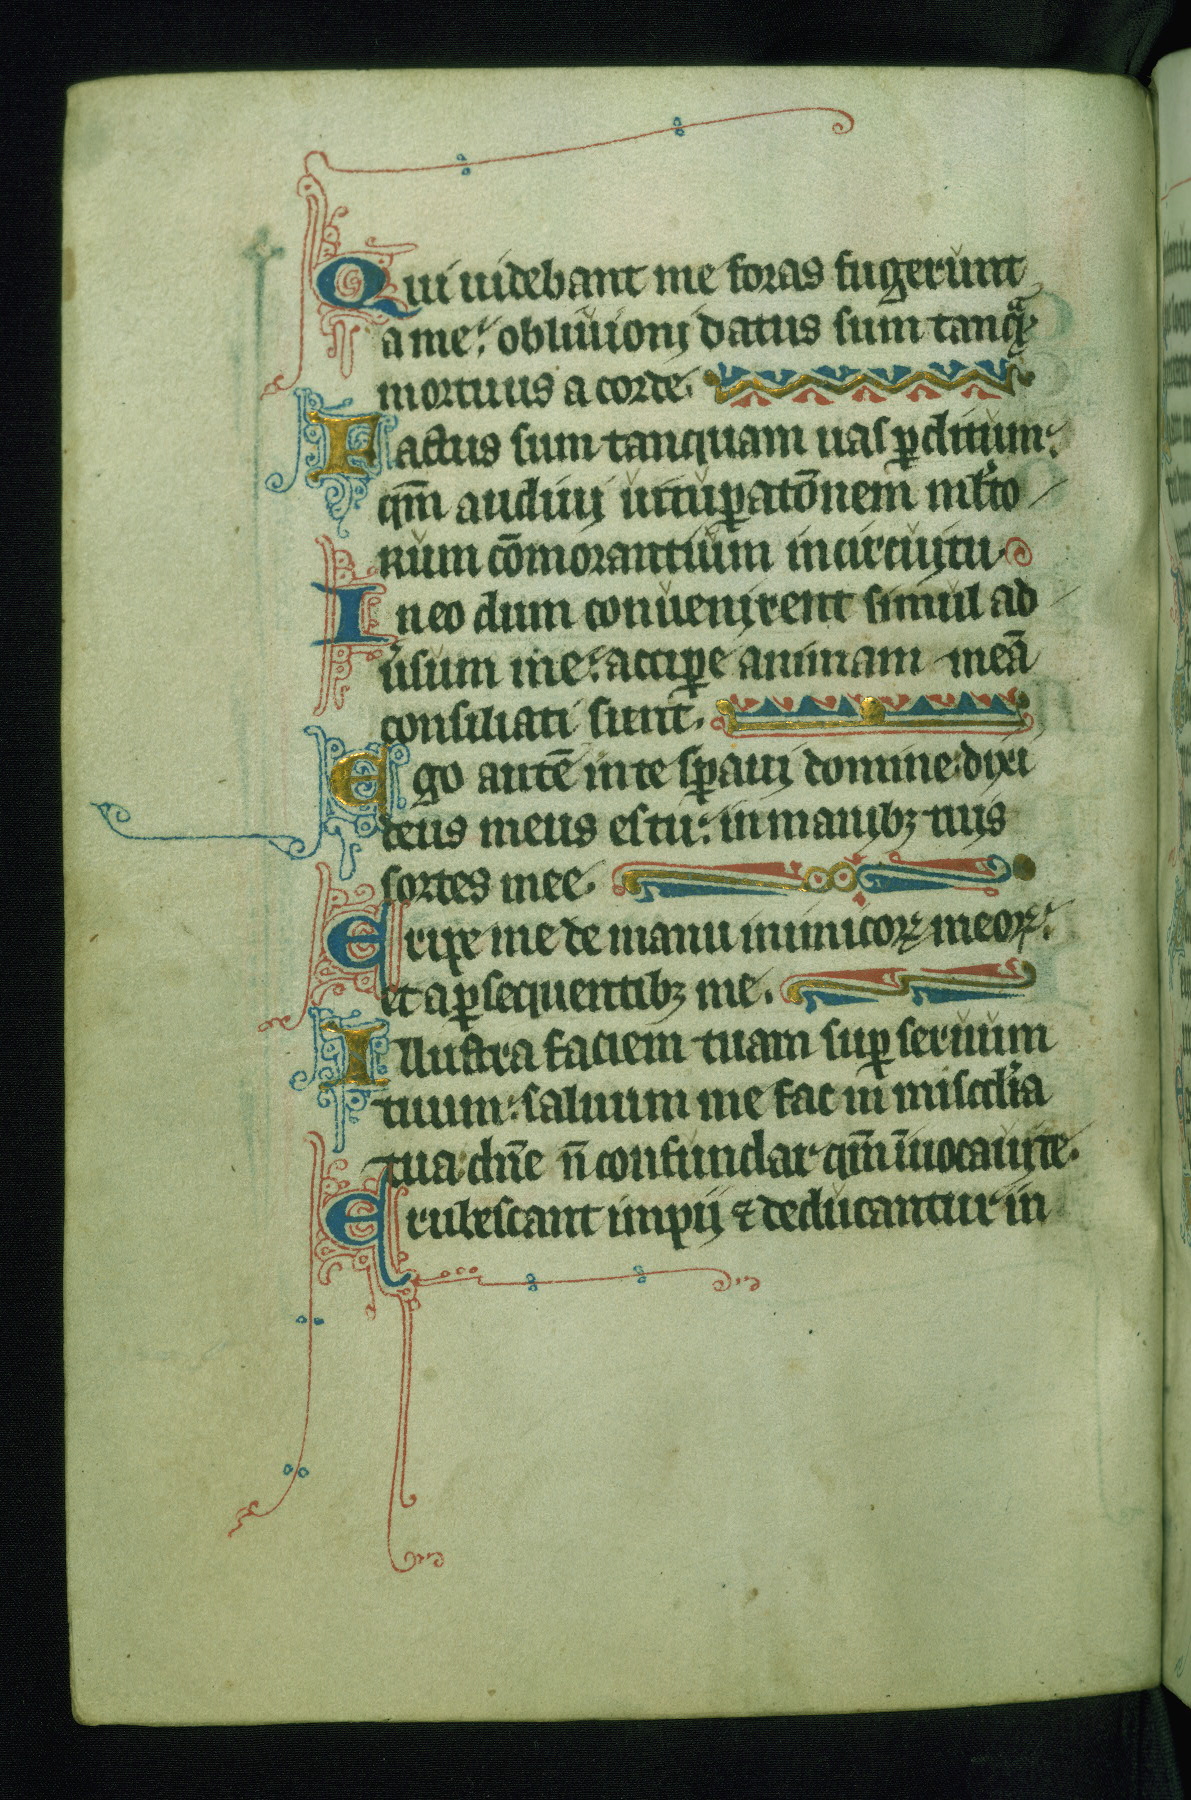 Qui uidebant me foras fugerunt
a me: obliuioni datus sum tanqᷓ
mortuus a corde.
Factus sum tanquam uas ꝑditum:
qm̄ audiui uituꝑatōnem mĺto
rum cōmorantium in circuitu
In eo dum conuenirent simul ad
u̕sum me: acciꝑe animam meā
consiliati sunt.
Ego autē in te sꝑaui domine dixi
deus meus es tu: in manibꝫ tuis
sortes mee.
Eripe me de manu inimicoꝝ meoꝝ:
et a ꝑsequentibꝫ me.
Illustra faciem tuam suꝑ seruum
tuum: saluum me fac in miscd̕ia
tua dn̄e n̄ confundar qm̄ īuocaui te.
Erubescant impij ⁊ deducantur in